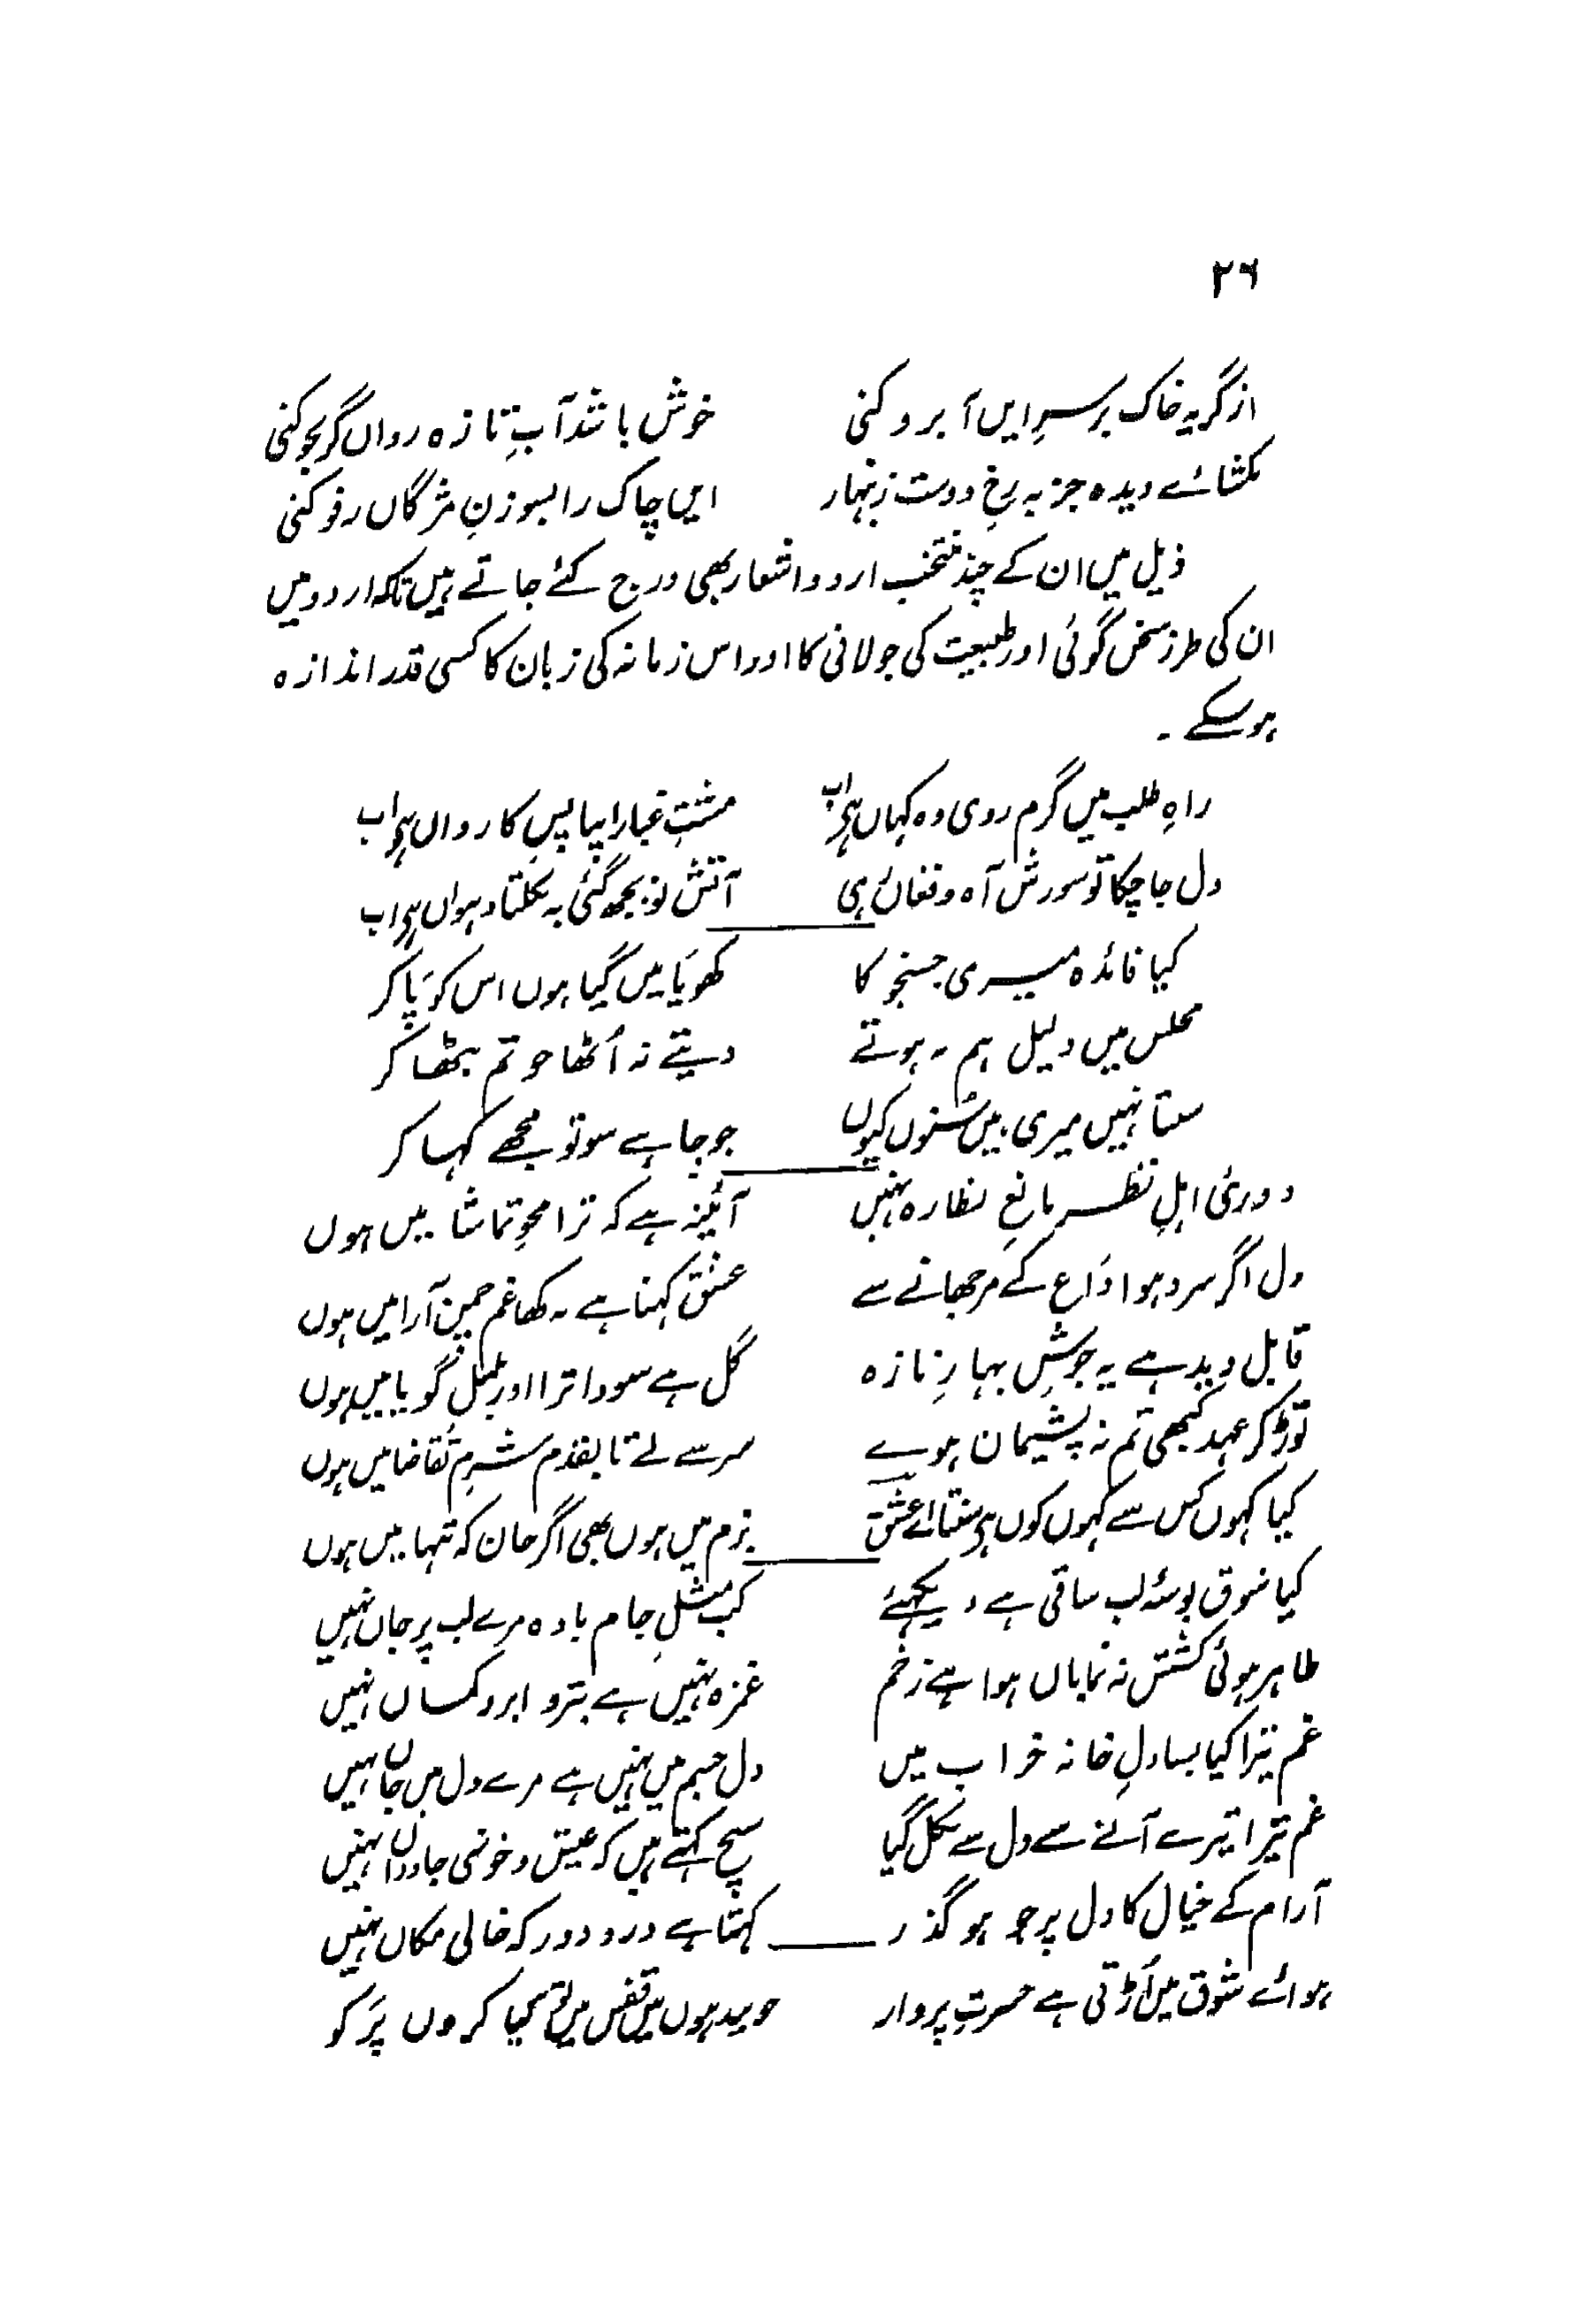 ۲۶
از گریہ خاک بر سرِ ایں آبرو کنی خوش باشد آبِ تازہ رواں گر بجو کنی
مکشائے دیدہ جز بہ رخِ دوست زنہار ایں چاک را بسوزنِ مژگاں رفو کنی
ذیل میں ان کے چند منتخب اردو اشعار بھی درج کئے جاتے ہیں تاکہ اردو میں
ان کی طرز سخن گوئی اور طبیعت کی جولانی کا اور اس زمانہ کی زبان کا کسی قدر اندازہ
ہوسکے ۔
راہِ طلب میں گرم روی وہ کہاں ہے اب مشتِ غبار اپنا پسِ کارواں ہے اب
دل جا چکا تو سوزش آہ و فغاں ہی آتش تو بجھ گئی یہ نکلتا دہواں ہے اب
کیا فائدہ میری جستجو کا کھویا میں گیا ہوں اس کو پا کر
مجلس میں ذلیل ہم نہ ہوتے دیتے نہ اُٹھا جو تم بٹھا کر
سنتا نہیں میری، میں سنوں کیوں جو چاہے سو تو مجھے کہا کر
دوریٔ اہلِ نظر مانعِ نظارہ نہیں آئینہ ہے کہ ترا محوِ تماشا میں ہوں
دل اگر سرد ہوا داغ کے مرجھانے سے عشق کہتا ہے نہ کھا غم چمن آرا میں ہوں
قابل دید ہے یہ جوشِ بہارِ تازہ گل ہے سودا ترا اور بلبلِ گویا میں ہوں
توڑ کر عہد کبھی تم نہ پشیمان ہوے سر سے لے تا بقدم شرمِ تقاضا میں ہوں
کیا کہوں کس سے کہوں کون ہے سنتا اے عشق بزم میں ہوں بھی اگر جان کہ تنہا میں ہوں
کیا شوق بوسۂ لب ساقی ہے دیکھئے کب مثلِ جام بادہ مرے لب پر جاں نہیں
ظاہر ہوئی کشش نہ نمایاں ہوا ہے زخم غمزہ نہیں ہے تیر و ابرو کماں نہیں
غم تیرا کیا بسا دلِ خانہ خراب میں دل جسم میں نہیں ہے مرے دل میں جاں نہیں
غم تیرا تیرے آنے سے دل سے نکل گیا سچ کہتے ہیں کہ عیش و خوشی جاوداں نہیں
آرام کے خیال کا دل پر جو ہو گذر کہتا ہے درد دور کہ خالی مکاں نہیں
ہوائے شوق میں اُڑتی ہے حسرتِ پرواز ہوں میں قفس میں تو کیا کروں پَر کو